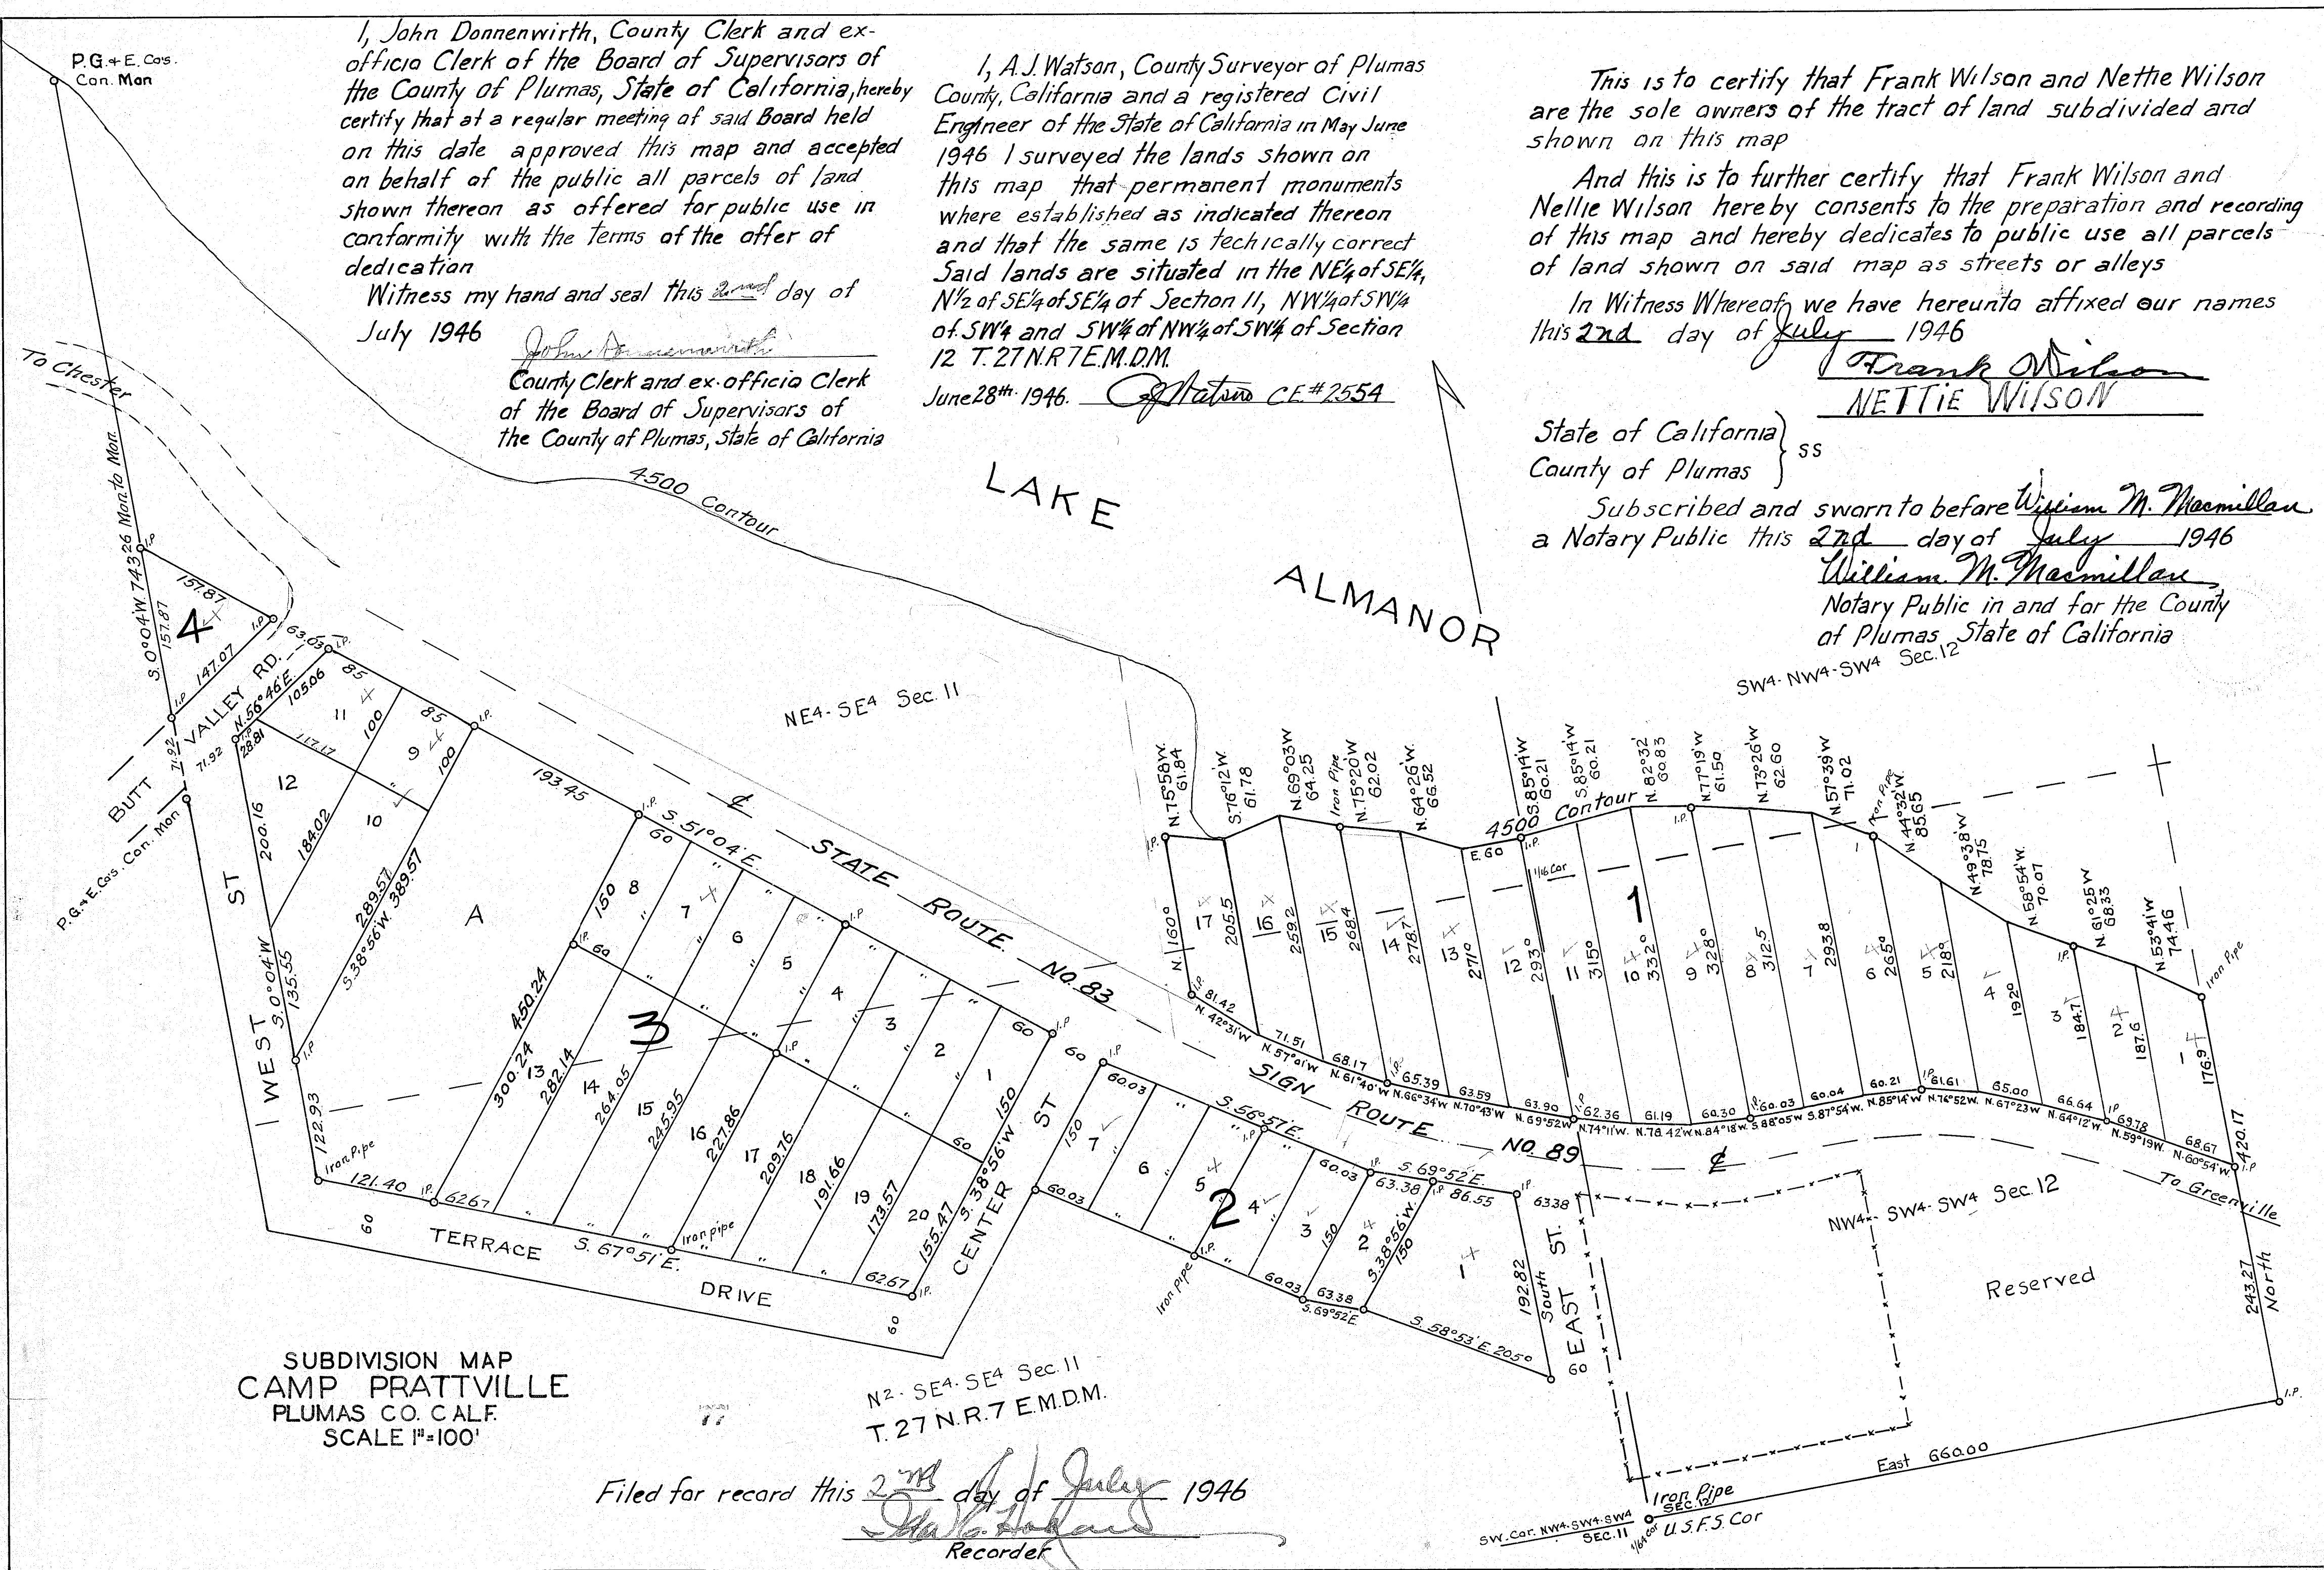 P.G.&E. Co's.
Con. Mon
I, John Donnenwirth, County Clerk and ex-
officio Clerk of the Board of Supervisors of
the County of Plumas, State of California, hereby
certify that at a regular meeting of said Board held
on this date approved this map and accepted
on behalf of the public all parcels of land
shown thereon as offered for public use in
conformity with the terms of the offer of
dedication
Witness my hand and seal this 2nd day of
July 1946
John Donnenwirth
County Clerk and ex-officio Clerk
of the Board of Supervisors of
the County of Plumas, State of California
I, A.J. Watson, County Surveyor of Plumas
County, California and a registered Civil
Engineer of the State of California in May June
1946 I surveyed the lands shown on
this map that permanent monuments
where established as indicated thereon
and that the same is techically correct
Said lands are situated in the NE¼ of SE¼,
N½ of SE¼ of SE¼ of Section 11, NW¼ of SW¼
of SW¼ and SW¼ of NW¼ of SW¼ of Section
12 T. 27 N. R 7 E. M.D.M.
June 28th 1946. AJ Watson CE #2554
This is to certify that Frank Wilson and Nettie Wilson
are the sole owners of the tract of land subdivided and
shown on this map
And this is to further certify that Frank Wilson and
Nellie Wilson hereby consents to the preparation and recording
of this map and hereby dedicates to public use all parcels
of land shown on said map as streets or alleys
In Witness Whereof, we have hereunto affixed our names
this 2nd day of July 1946
Frank Wilson
NETTIE WILSON
State of California } ss
County of Plumas
Subscribed and sworn to before William M. Macmillan
a Notary Public this 2nd day of July 1946
William. M. Macmillan
Notary Public in and for the County
of Plumas State of California
To Chester
4500 Contour
LAKE
ALMANOR
SW4-NW4-SW4 Sec. 12
S. 0°04'W. 743.26 Mon. to Mon.
I.P.
157.87
157.87
4
147.07
I.P.
I.P.
63.03
I.P.
BUTT VALLEY RD.
N. 56°46'E.
105.06
71.92
71.92
28.81
I.P.
P.G.&E. Co's. Con. Mon
85
11
100
85
9
100
I.P.
117.17
12
10
200.16
184.02
289.57
S. 38°56'W. 389.57
A
193.45
WEST ST
S. 0°04'W
135.55
I.P.
122.93
Iron Pipe
121.40
I.P.
62.67
60
TERRACE DRIVE
S. 67°51'E.
Iron pipe
62.67
I.P.
60
NE4-SE4 Sec. 11
I.P.
S. 51°04'E.
60
150
8
7
6
5
4
3
2
1
I.P.
60
I.P.
60
150
I.P.
60
3
I.P.
60
450.24
300.24
13
282.14
14
264.05
15
245.95
16
227.86
17
209.76
18
191.66
19
173.57
20
155.47
S. 38°56'W.
CENTER ST
℄ STATE ROUTE NO. 83
SIGN ROUTE NO. 89
℄
60
I.P.
60.03
150
7
6
5
4
3
2
1
2
S. 56°57'E.
I.P.
60.03
I.P.
S. 69°52'E.
63.38
I.P.
86.55
I.P.
63.38
60.03
Iron pipe
I.P.
60.03
150
63.38
S. 69°52'E.
S. 38°56'W.
150
S. 58°53'E. 205°
192.82
South
EAST ST.
60
N. 75°58'W.
61.84
S. 76°12'W.
61.78
N. 69°03'W
64.25
Iron Pipe
N. 75°20'W
62.02
N. 64°26'W.
66.52
E. 60
S. 85°14'W
60.21
S. 85°14'W
60.21
N. 82°32'
60.83
N. 77°19'W
61.50
N. 73°26'W
62.60
N. 57°39'W
71.02
Iron Pipe
N. 44°32'W.
85.65
N. 49°38'W
78.75
N. 58°54'W.
70.07
N. 61°25'W
68.33
N. 53°41'W
74.46
Iron Pipe
4500 Contour
1/16 Cor
1
I.P.
N. 160°
17
205.5
16
259.2
15
268.4
14
278.7
13
271°
12
293°
11
315°
10
332°
9
328°
8
312.5
7
293.8
6
265°
5
218°
4
192°
3
184.7
2
187.6
1
176.9
I.P.
81.42
71.51
68.17
65.39
63.59
63.90
62.36
61.19
60.30
60.03
60.04
60.21
61.61
65.00
66.64
69.78
68.67
N. 42°31'W
N. 57°01'W
N. 61°40'W
N. 66°34'W
N. 70°43'W
N. 69°52'W
N. 74°11'W.
N. 78.42'W
N. 84°18'W
S. 88°05'W
S. 87°54'W.
N. 85°14'W
N. 76°52'W.
N. 67°23'W
N. 64°12'W.
N. 59°19'W.
N. 60°54'W
I.P.
420.17
To Greenville
NW4-SW4-SW4 Sec. 12
Reserved
243.27
North
I.P.
East 660.00
Iron Pipe
SEC. 12
SW. Cor. NW4-SW4-SW4
SEC. 11
1/64 Cor
U.S.F.S. Cor
SUBDIVISION MAP
CAMP PRATTVILLE
PLUMAS CO. CALF.
SCALE 1"=100'
N2-SE4-SE4 Sec. 11
T. 27 N. R. 7 E. M.D.M.
Filed for record this 2nd day of July 1946
Recorder